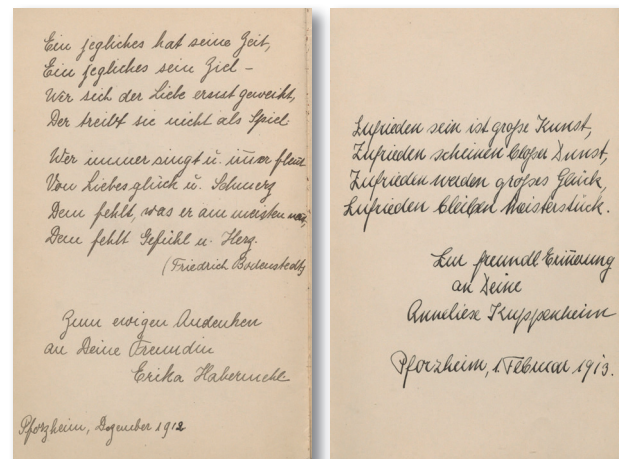 Ein jegliches hat seine Zeit,
Ein jegliches sein Ziel –
Wer sich der Liebe ernst geweiht,
Der treibt sie nicht als Spiel.
Wer immer singt u. im̅er flennt
Von Liebesglück u. Schmerz
Dem fehlt, was er am meisten nennt,
Dem fehlt Gefühl u. Herz.
(Friedrich Bodenstedt)
Zum ewigen Andenken
an Deine Freundin
Erika Habermehl
Pforzheim, Dezember 1912
Zufrieden sein ist große Kunst,
Zufrieden scheinen bloßer Dunst,
Zufrieden werden großes Glück,
Zufrieden bleiben Meisterstück.
Zur freundl. Erin̅erung
an Deine
Anneliese Kuppenheim
Pforzheim, 1. Februar 1913.